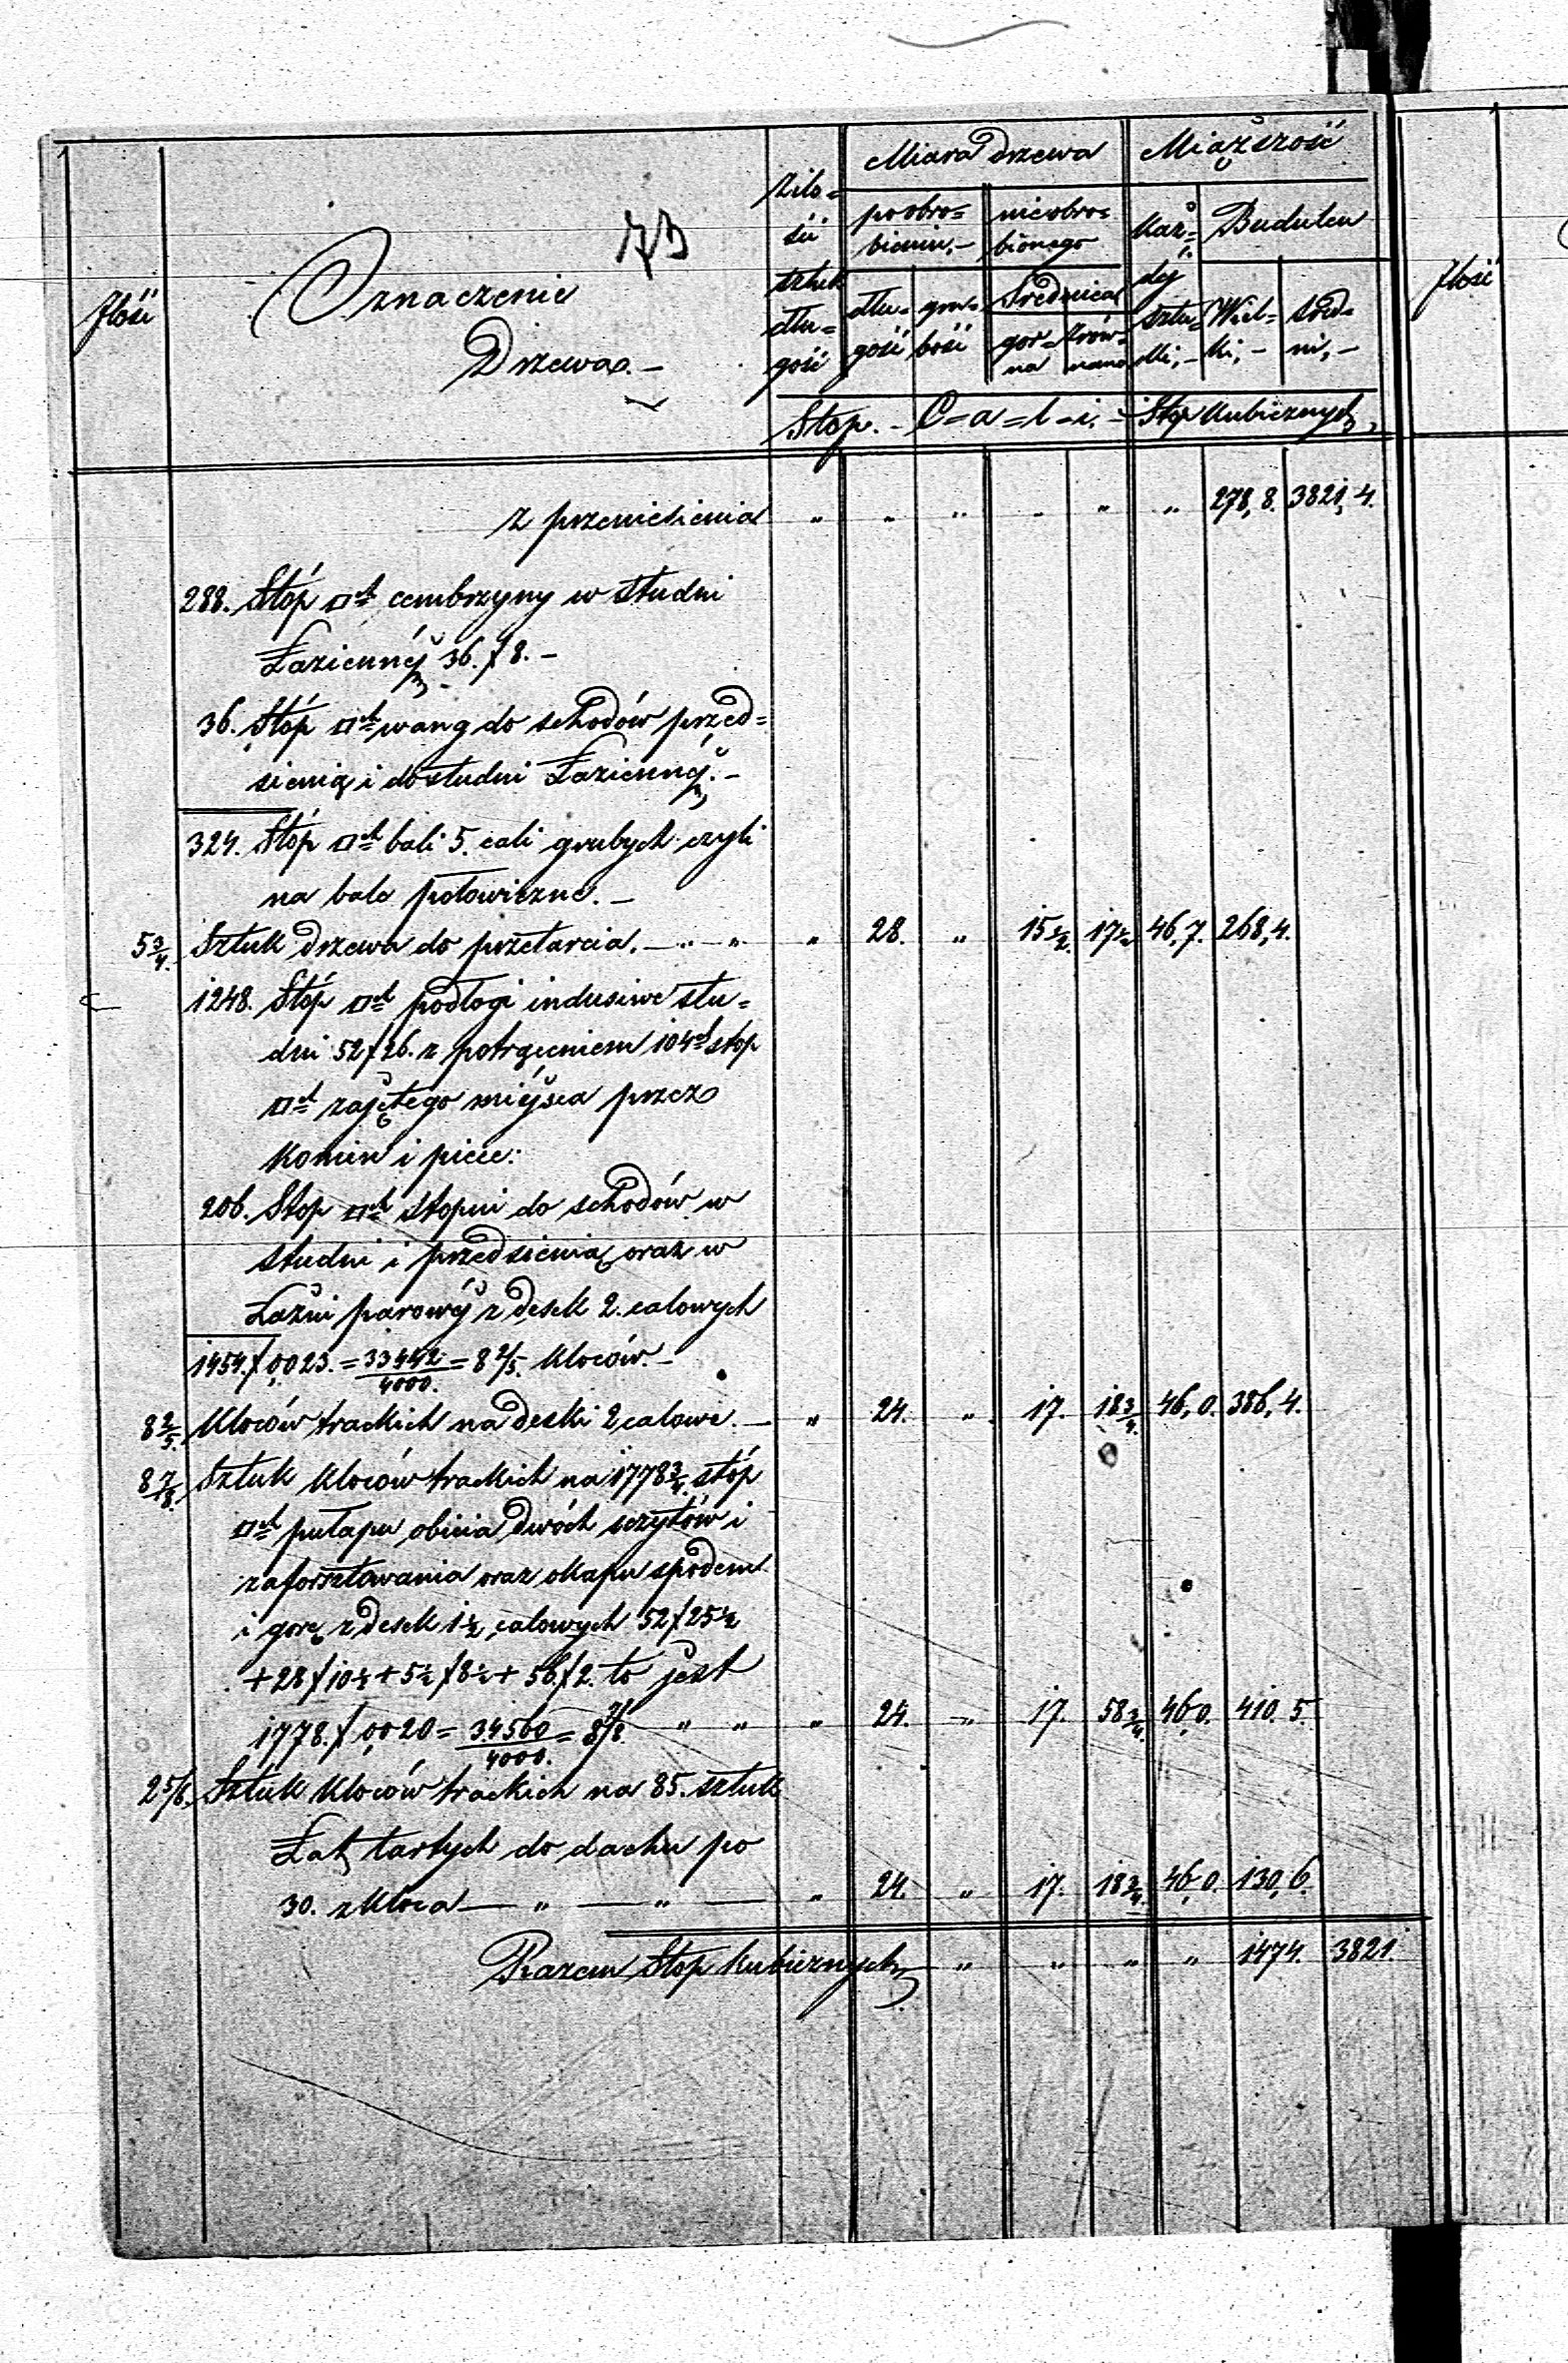 73
Jlość
Oznaczenie
Drzewa. –
z ilo=
ści
sztuk
dłu=
gość
Miara drzewa
po obro=
bieniu, –
nieobro=
bionego
dłu=
gość
gru=
bość
Średnica
gór=
na
zrów=
nana
Miąższość
Każ=
dej
sztu=
ki, –
Budulcu
Wiel=
ki, –
śred=
ni, –
Stop. – C = a = l = i. – Stóp kubicznych,
Jlość
z przeniesienia " " " " " " 278,8. 3821,4.
288. Stóp □ch cembrzyny w studni
Łaziennéj 36. / 8. –
36. Stóp □ch wang do schodów przed=
sienią i do studni Łaziennéj. –
324. Stóp □ch bali 5. cali grubych czyli
na bale połowiczne. –
5 3/4. Sztuk drzewa do przetarcia. – " – " " 28. " 15 1/2. 17 1/2 46,7. 268,4.
1248. Stóp □ch podłogi inclusive stu=
dni 52/26. z potrąceniem 104ch stop
□ch zajętego miéjsca przez
komin i piece:
206. Stop □ch stopni do schodów w
studni i przedsienią oraz w
Łaźni parowéj z desek 2. calowych
1454./ 0,023. = 33442/4000. = 8 2/5. kloców. –
8 2/5. Kloców trackich na deski 2 calowe. – " 24. " 17. 18 3/4. 46,0. 386,4.
8 7/8. Sztuk kloców trackich na 1778 3/4. stóp
□ch pułapu obicia dwóch sczytów i
zaforsztowania oraz okapu spodem
i gorę z desek 1 1/2 calowych 52/25 1/2
+ 28/10 1/2 + 5 1/2/8 1/2 + 56/2. to jest
1778./ 0,020 = 34560/4000. = 8 7/8. " " " 24. " 17. 58 3/4. 46,0. 410.5.
2 5/6. Sztuk kloców trackich na 85. sztuk
Łat tartych do dachu po
30. z kloca – " – " – " 24. " 17. 18 3/4. 46,0. 130,6.
Razem Stop kubicznych – " " " " 1474. 3821.